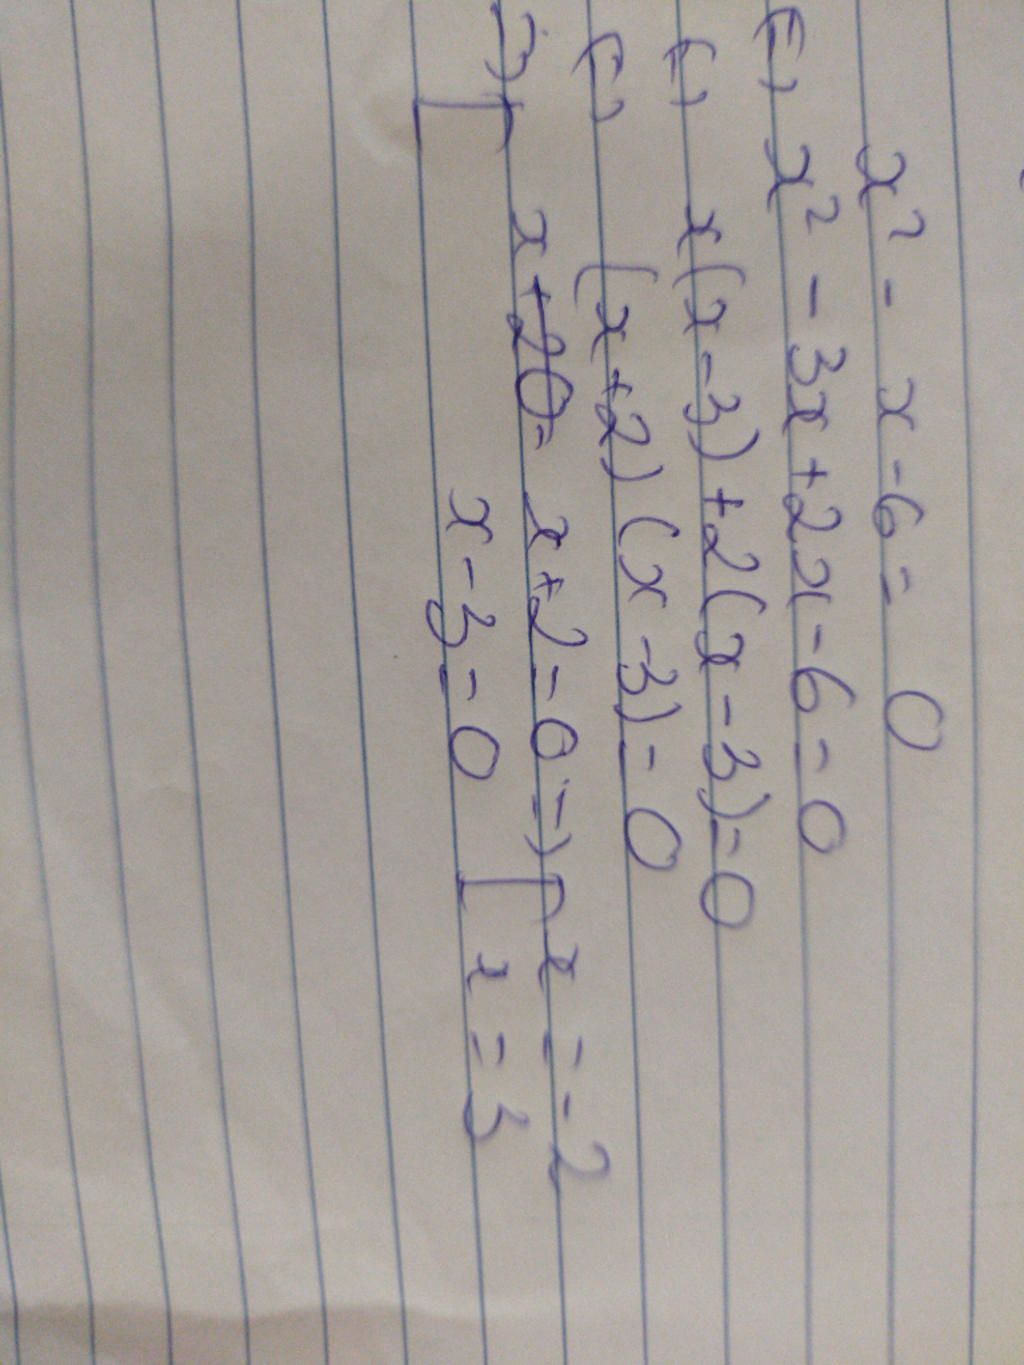 x² - x - 6 = 0
(=) x² - 3x + 2x - 6 = 0
(=) x(x - 3) + 2(x - 3) = 0
(=) (x + 2) (x - 3) = 0
=) [ x + 2 = 0 =) [ x = -2
x - 3 = 0 x = 3